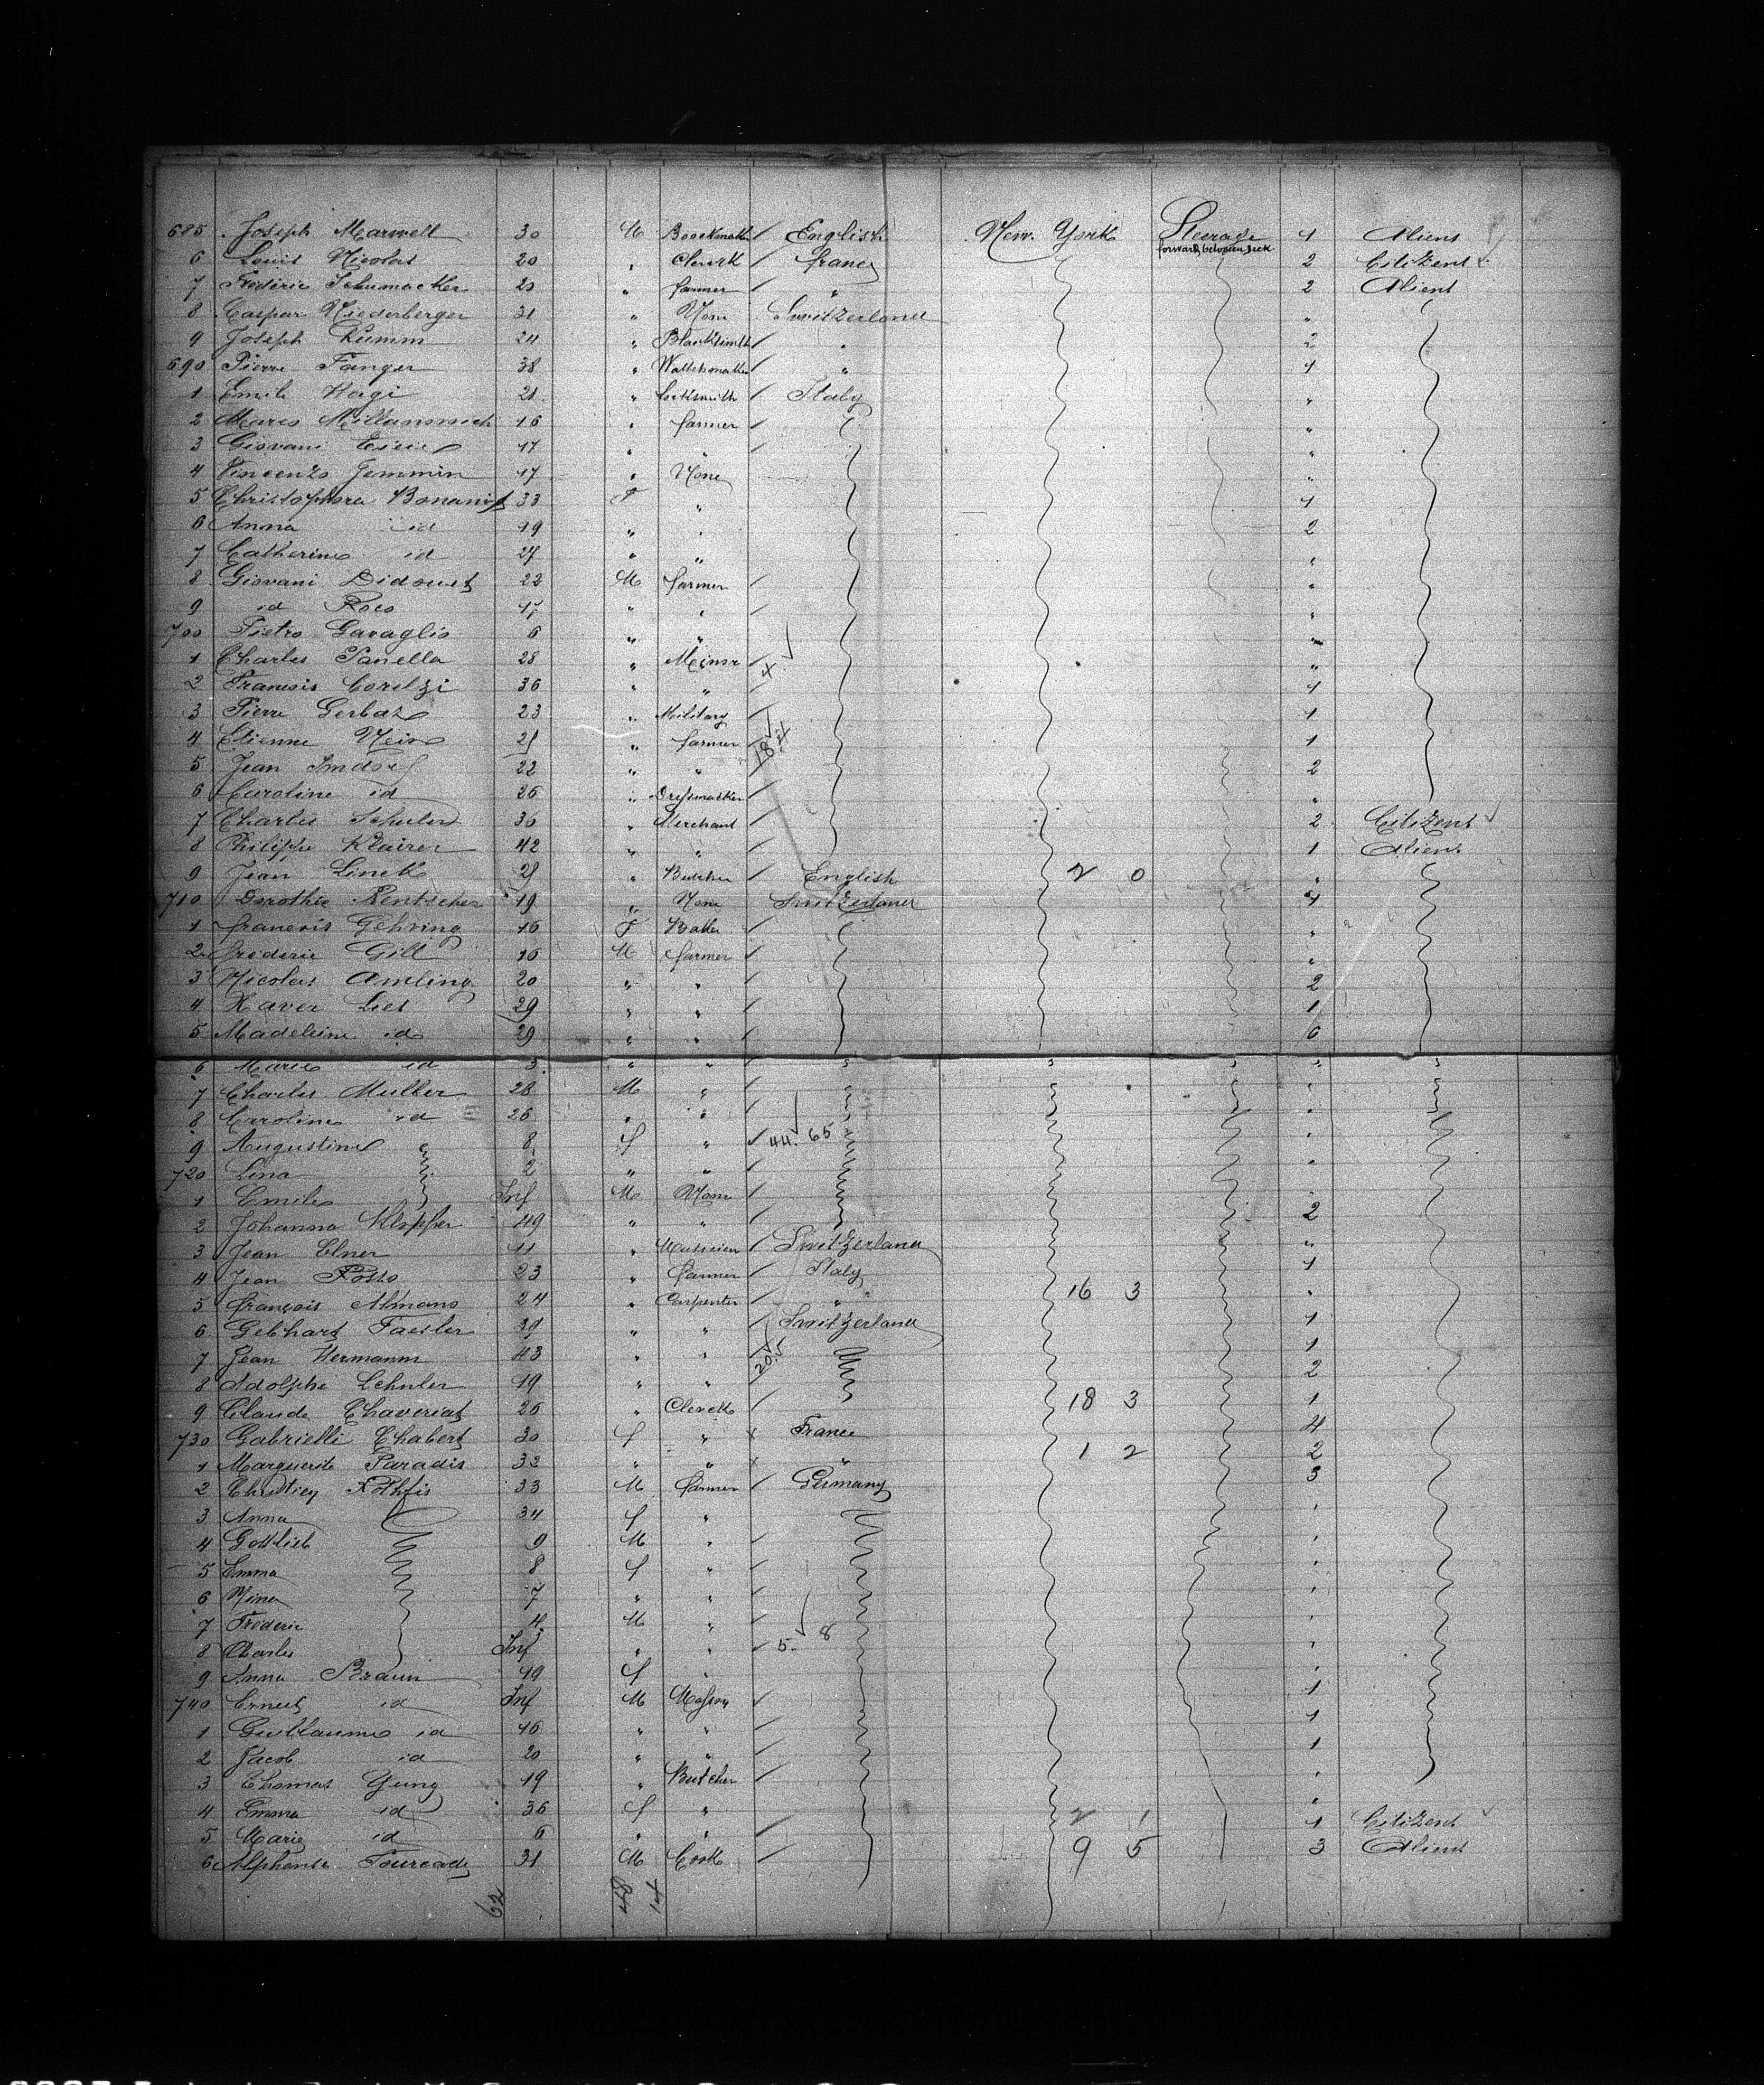 685 Joseph Marwell 30 M Bookmak English New York Steerage 1 Aliens
forward between deck
6 Louis Nicolas 20 " Cleark france 2 Citizens
7 Frederic Schumacker 20 " farmer " 2 Aliens
8 Caspar Niederberger 31 " None Switzerland "
9 Joseph Kumm 24 " Blacksmith " 2
690 Pierre Fanger 38 " Watchmaker " 1
1 Emile Hagi 21 " Locksmith Italy "
2 Marco 16 " farmer "
3 Giovani 17 " " "
4 Vincenzo Jemmin 17 " None "
5 Christophora 33 F " 1
6 Anna id 19 " " 2
7 Catherine id 27 " " "
8 Giovani 22 M farmer "
9 id Roco 17 " " "
700 Pietro Garaglio 6 " " "
1 Charles Panella 28 " Minor 4 "
2 Francois Corelzi 36 " " 1
3 Pierre Gerbaz 23 " Military 1
4 Etienne 21 " farmer 18 1
5 Jean 22 " " 2
6 Caroline id 26 " Dressmaker "
7 Charles Schuler 36 " Merchant 2 Citizens
8 Philippe Klairer 42 " " 1 Aliens
9 Jean Linck 28 " Butcher English 2 0 "
710 Dorothie Rentscher 19 " None Switzerland 1
1 francois Gehring 16 F Baker "
2 frederic Gill 16 M farmer "
3 Nicolas Amling 20 " " 2
4 Xaver Liet 29 " " 1
5 Madeleine id 29 " " 6
6 Marie id 3 " " "
7 Charles Muller 28 M " "
8 Caroline id 26 " " "
9 Augustine 8 f " 44 65 "
720 Lina 2 " " "
1 Emile Inf M None "
2 Johanna Klopfer 49 " " 2
3 Jean Elner 41 " Musicien Switzerland "
4 Jean Rosso 23 " farmer Italy 1
5 françois Almano 24 " Carpenter " 16 3 "
6 Gebhart Faesler 39 " " Switzerland 1
7 Jean Hermann 43 " " 20 1
8 Adolphe Schuler 19 " " 2
9 Claude Chaveriat 26 " Clerck 18 3 1
730 Gabrielli Chabert 30 f " France 4
1 Marguerite Paradis 32 " " " 1 2 2
2 Rothfis 33 M farmer Germany 3
3 Anna 34 f " "
4 Gottlieb 9 M " "
5 Emma 8 f " "
6 Mina 7 " " "
7 Frederic 4 M " "
8 Charles Inf " " 5 8 "
9 Anna Braun 49 f " "
740 Ernest id Inf M Mason 1
1 Guillaume id 16 " " 1
2 Jacob id 20 " " 1
3 Thomas Yung 19 " Butcher "
4 Emma id 36 f " 2 1 "
5 Marie id 6 " " 1 Citizens
6 Alphonse Fourcade 31 M Cook 9 5 3 Aliens
62 48 14